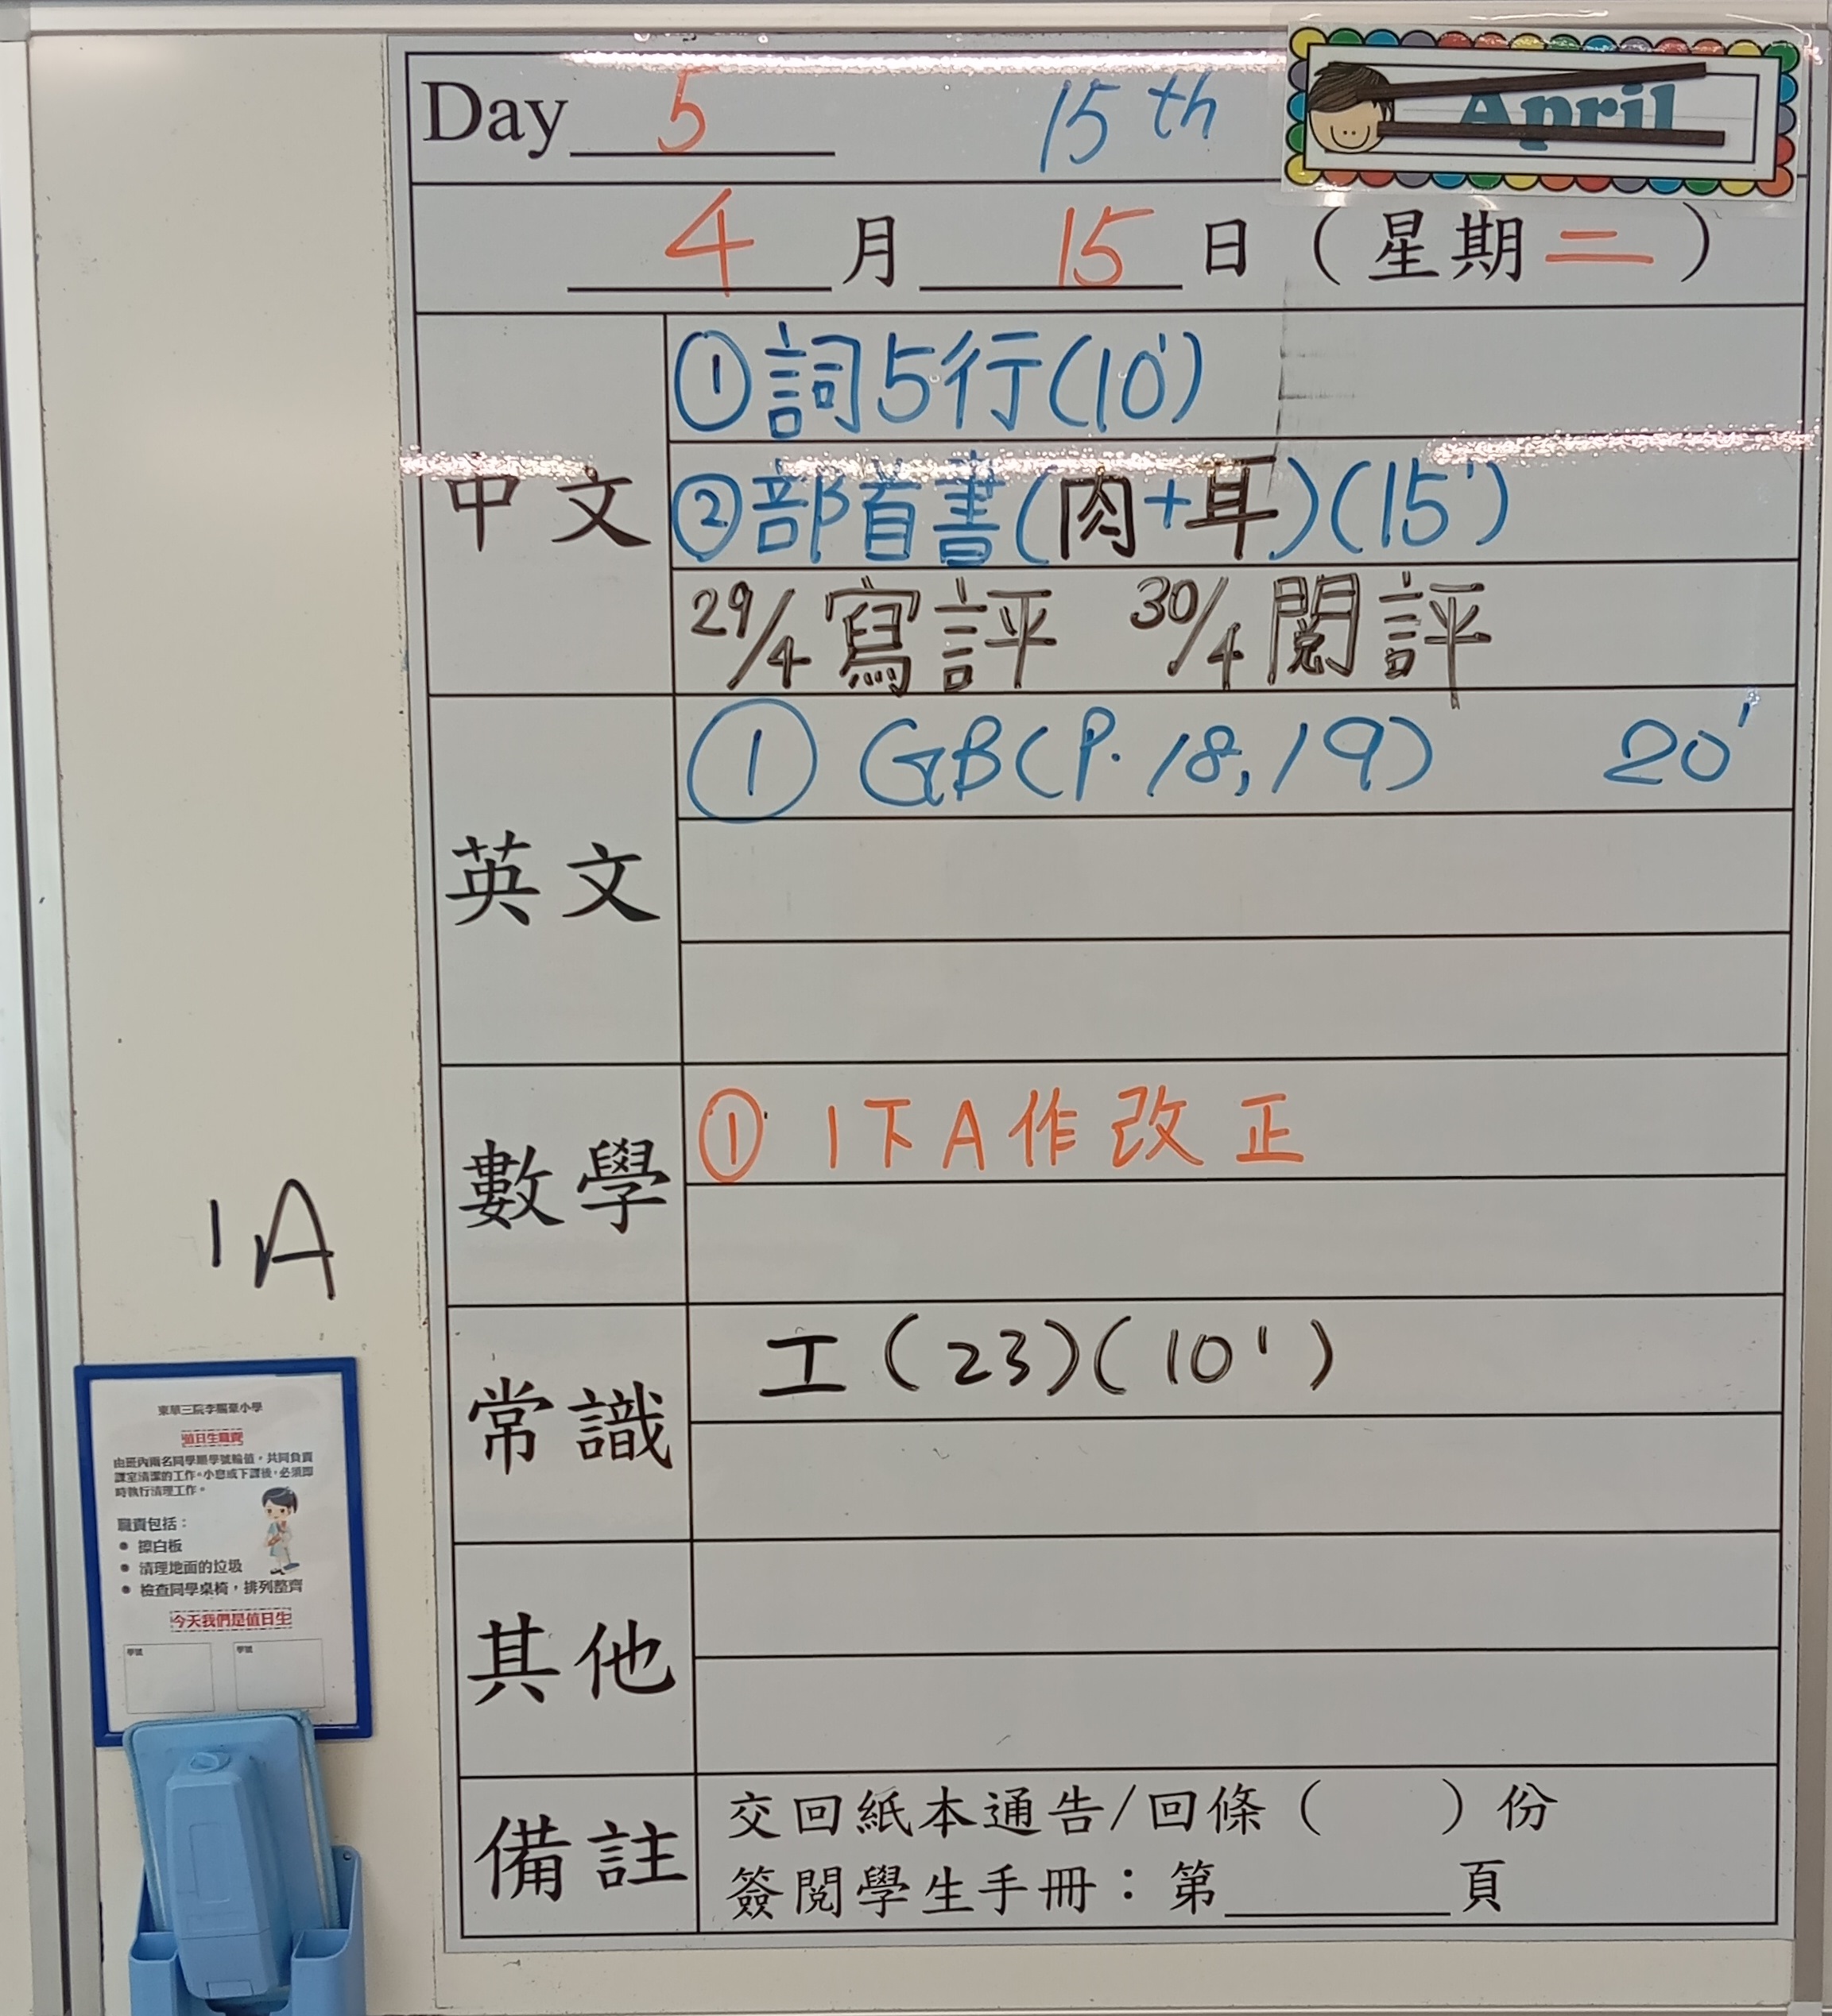 Day 5 15th April
4月15日（星期二）
中文
①詞5行(10')
②部首書(肉+耳)(15')
29/4 寫評 30/4 閱評
英文
① GB(P.18,19) 20'
數學
① 1下A作改正
常識
工(23)(10')
其他
備註
交回紙本通告/回條（ ）份
簽閱學生手冊：第______頁
1A
值日生職責
由班內兩名同學順學號輪值，共同負責
課室清潔的工作。小息或下課後，必須即
時執行清理工作。
職責包括：
• 擦白板
• 清理地面的垃圾
• 檢查同學桌椅，排列整齊
今天我們是值日生
學號 學號